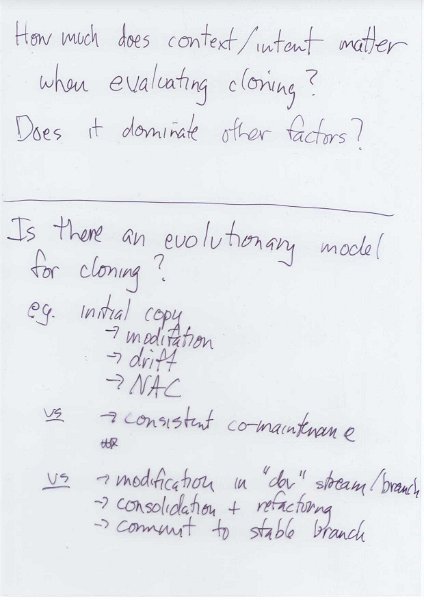 How much does context/intent matter
when evaluating cloning?
Does it dominate other factors?
Is there an evolutionary model
for cloning?
eg. initial copy
→ modifation
→ drift
→ NAC
vs → consistent co-maintenance
vs → modification in "dev" stream/branch
→ consolidation + refactoring
→ commit to stable branch